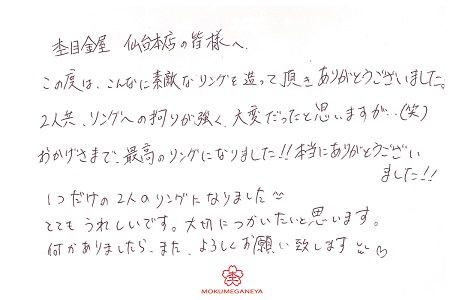 杢目金屋 仙台本店の皆様へ
この度は、こんなに素敵なリングを造って頂きありがとうございました。
2人共、リングへの拘りが強く、大変だったと思いますが…(笑)
おかげさまで、最高のリングになりました!!本当にありがとうござい
ました!!
1つだけの2人のリングになりました
とてもうれしいです。大切につかいたいと思います。
何かありましたら、また、よろしくお願い致します
MOKUMEGANEYA